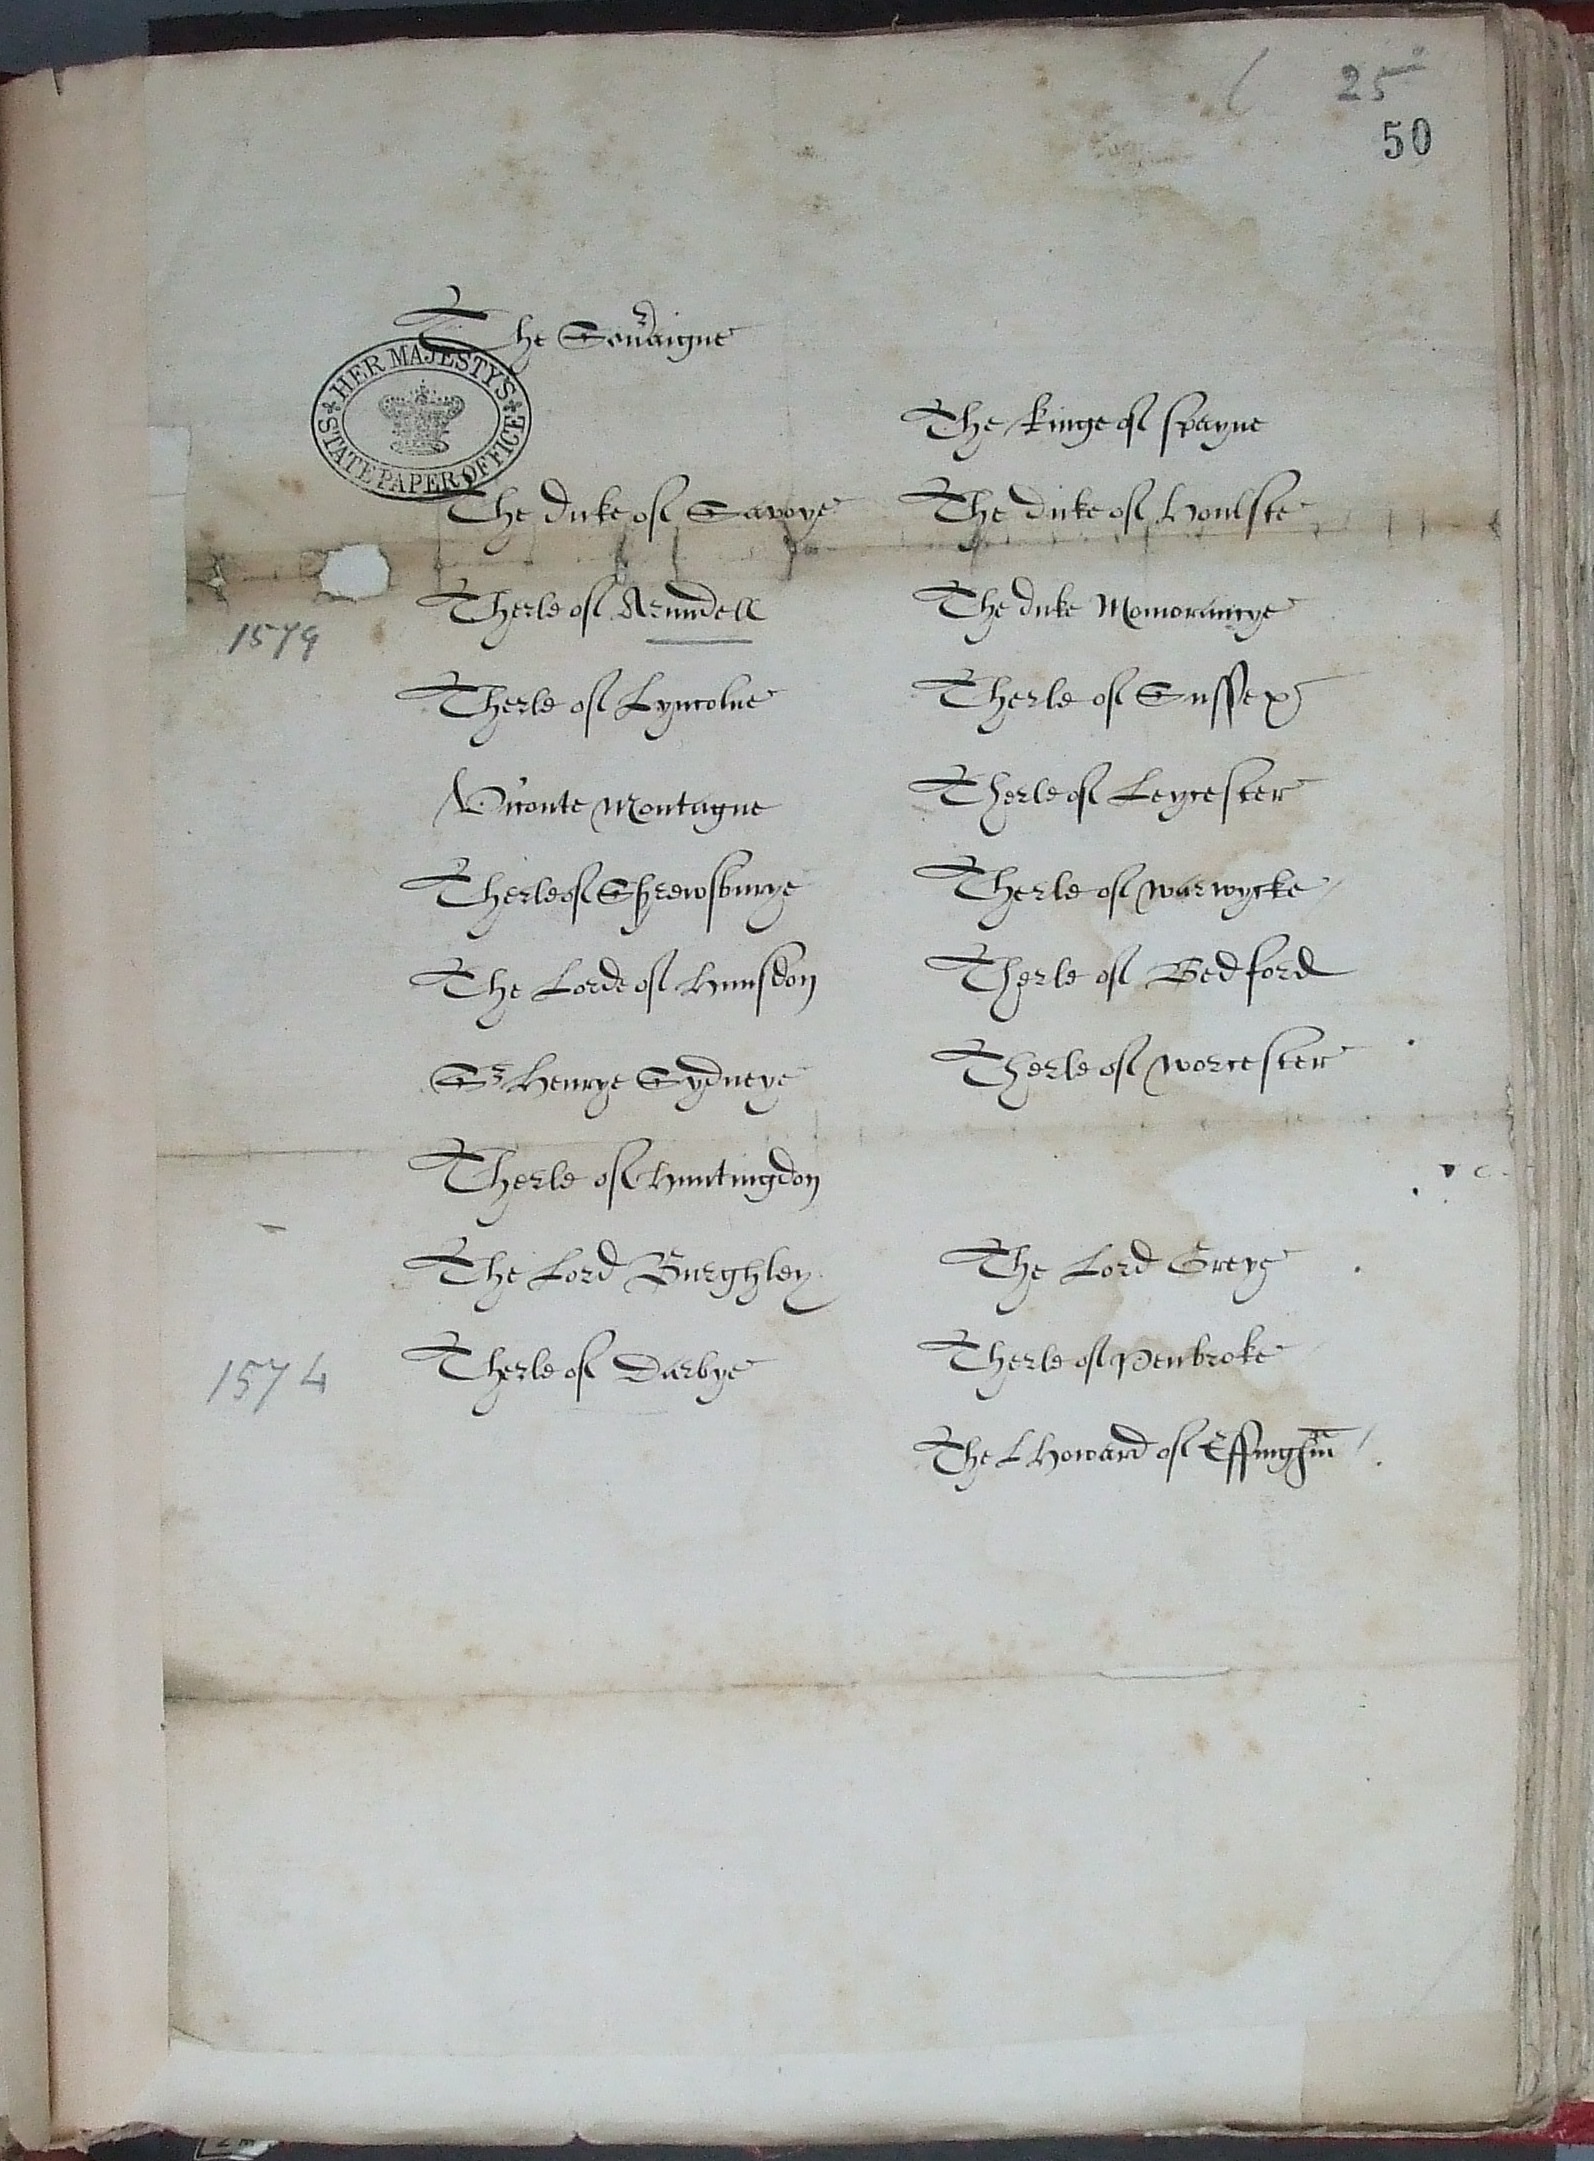 25
50
The Souraigne
HER MAJESTY'S
STATE PAPER OFFICE
The kinge of spayne
The duke of Savoye
The duke of Houlste
Therle of Arundell
The duke Momorancye
1579
Therle of Lyncolne
Therle of Sussex
Viconte Montague
Therle of Leycester
Therle of Shrewsburye
Therle of warwycke
The Lorde of Hunsdon
Therle of Bedford
Sr Henrye Sydneye
Therle of worcester
Therle of Huntingdon
The Lord Burghley
The Lord Greye
1574
Therle of Darbye
Therle of Penbroke
The L Howard of Effinghm